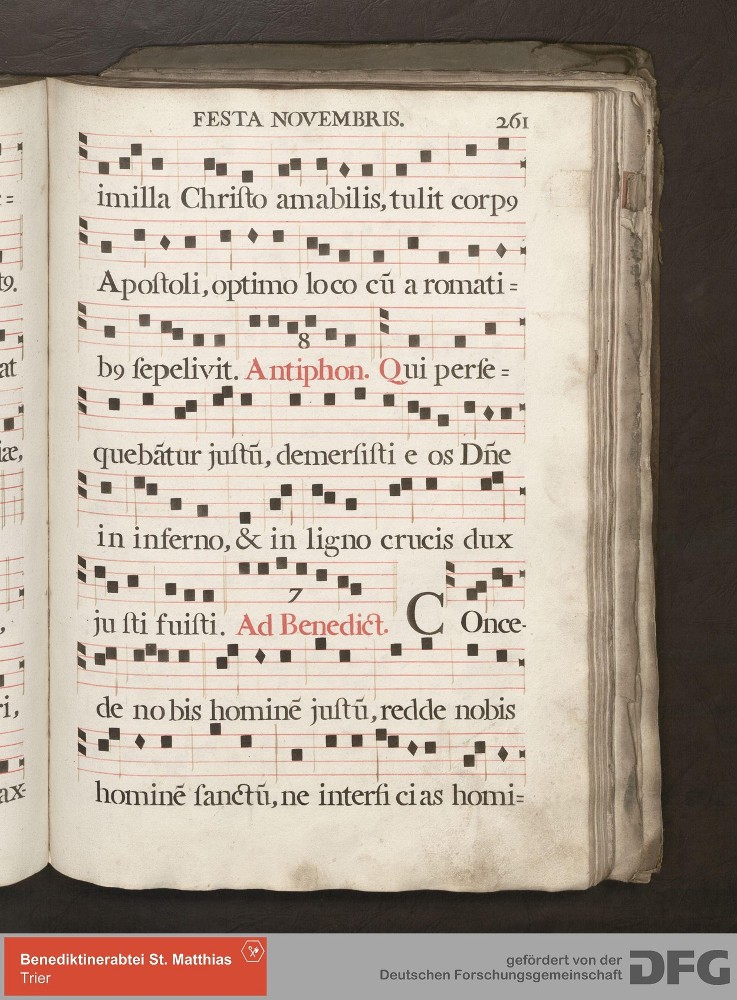 FESTA NOVEMBRIS. 261
imilla Chriſto amabilis, tulit corpꝯ
Apoſtoli, optimo loco cū a romati=
8
bꝯ ſepelivit. Antiphon. Qui perſe=
quebātur juſtū, demerſiſti e os Dñe
in inferno, & in ligno crucis dux
7
ju ſti fuiſti. Ad Benedict. C Once-
de no bis hominē juſtū, redde nobis
hominē ſanctū, ne interfi ci as homi=
Benediktinerabtei St. Matthias
Trier
gefördert von der
Deutschen Forschungsgemeinschaft
DFG